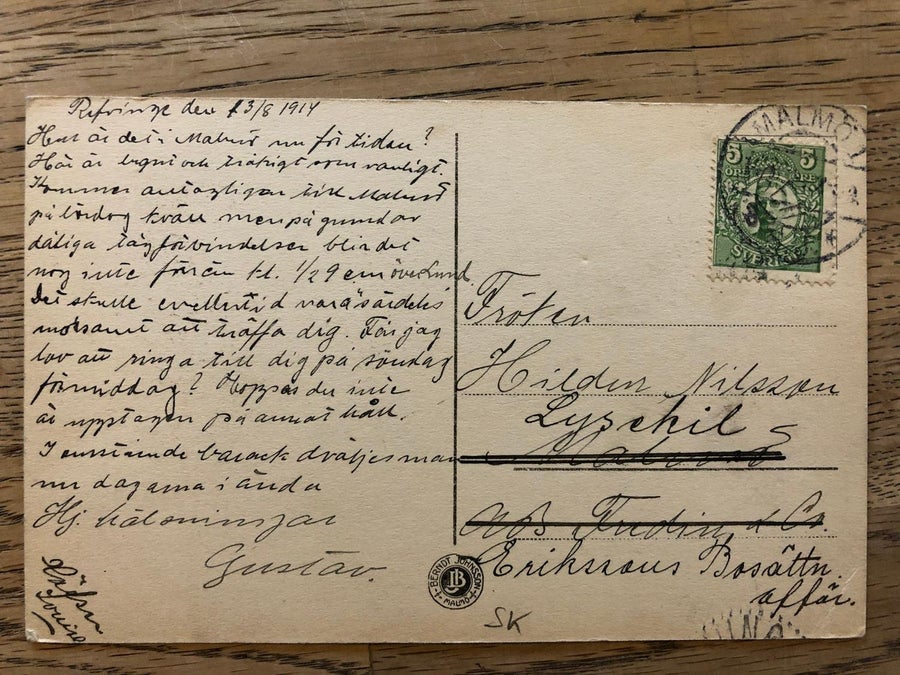 den 13/8 1914
Hur är det i Malmö nu för tiden?
Här är lugnt och tråkigt som vanligt.
Kommer antagligen till Malmö
på lördag kväll men på grund av
dåliga tågförbindelser blir det
nog inte förrän kl. 1/29 em över Lund.
Det skulle emellertid vara särdeles
att träffa dig. Får jag
lov att ringa till dig på söndag
förmiddag? Hoppas du inte
är upptagen på annat håll.
I barack dväljes man
nu dagarna i ända
Hj. hälsningar
Gustav.
Louise
MALMÖ
5 5
ÖRE ÖRE
SVERIGE
Fröken
Hildur Nilsson
Lysekil
Malmö
AB & Co.
Erikssons Bosättn.
affär.
BERNDT JOHNSSON
JB
MALMÖ
SK